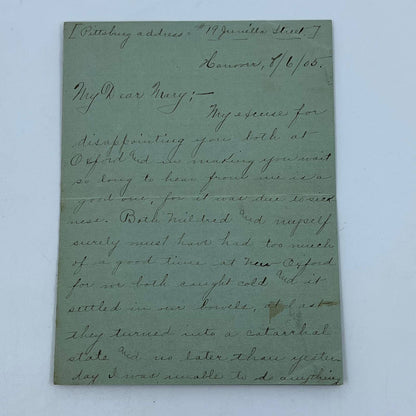 [Pittsburg address - #19 Jumilla Street.]
Hanover, 8/6/05.
My Dear Mary;-
My excuse for
disappointing you both at
Oxford and in making you wait
so long to hear from me is a
good one, for it was due to sick
ness. Both Mildred and myself
surely must have had too much
of a good time at New Oxford
for we both caught cold and it
settled in our bowels, at last
they turned into a catarrhal
state and no later than yester-
day I was unable to do anything